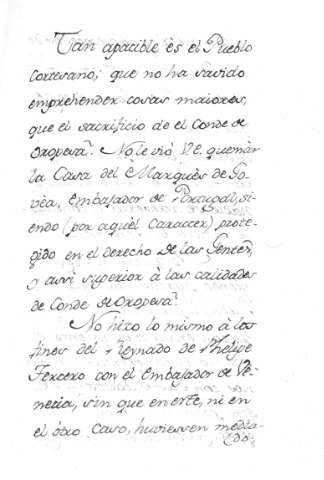 Tan apacible es el Pueblo
Cortesano, que no ha savido
emprehender cosas maiores,
que el sacrificio de el Conde de
Oropesa. No le vió V.E. quemar
la Casa del Marquès de Go-
vèa, Embajador de Portugal, si-
endo (por aquèl Caracter) prote-
gido en el derecho de las Gentes,
y aun superior à las calidades
de Conde de Oropesa.
No hizo lo mismo à los
fines del Reynado de Phelipe
Tercero con el Embajador de Ve-
necia, sin que en este, ni en
el otro Caso, huviessen media-
do